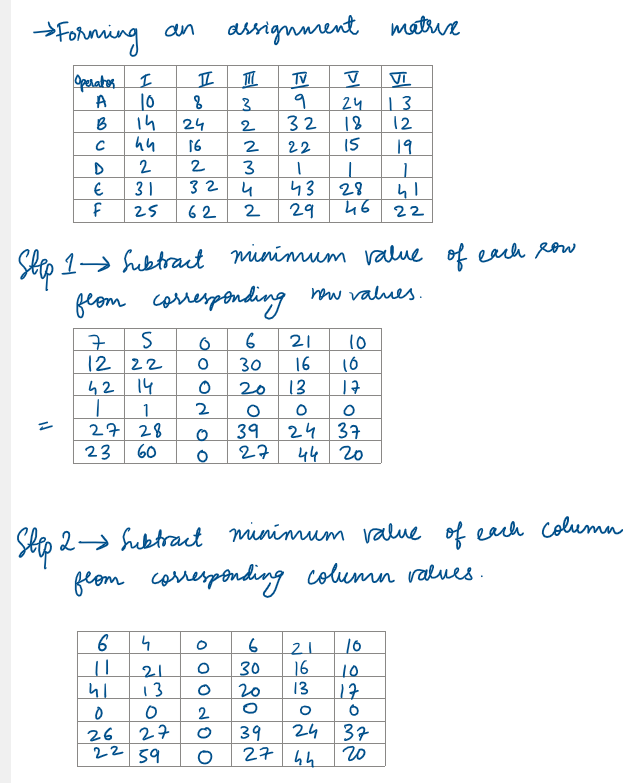 →Forming an assignment matrix
Operator I II III IV V VI
A 10 8 3 9 24 13
B 14 24 2 32 18 12
C 44 16 2 22 15 19
D 2 2 3 1 1 1
E 31 32 4 43 28 41
F 25 62 2 29 46 22
Step 1→ Subtract minimum value of each row
from corresponding row values.
7 5 0 6 21 10
12 22 0 30 16 10
42 14 0 20 13 17
1 1 2 0 0 0
= 27 28 0 39 24 37
23 60 0 27 44 20
Step 2→ Subtract minimum value of each column
from corresponding column values.
6 4 0 6 21 10
11 21 0 30 16 10
41 13 0 20 13 17
0 0 2 0 0 0
26 27 0 39 24 37
22 59 0 27 44 20